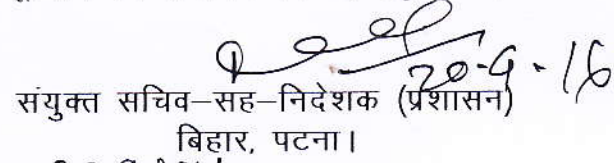 20-9-16
संयुक्त सचिव–सह–निदेशक (प्रशासन)
बिहार, पटना।